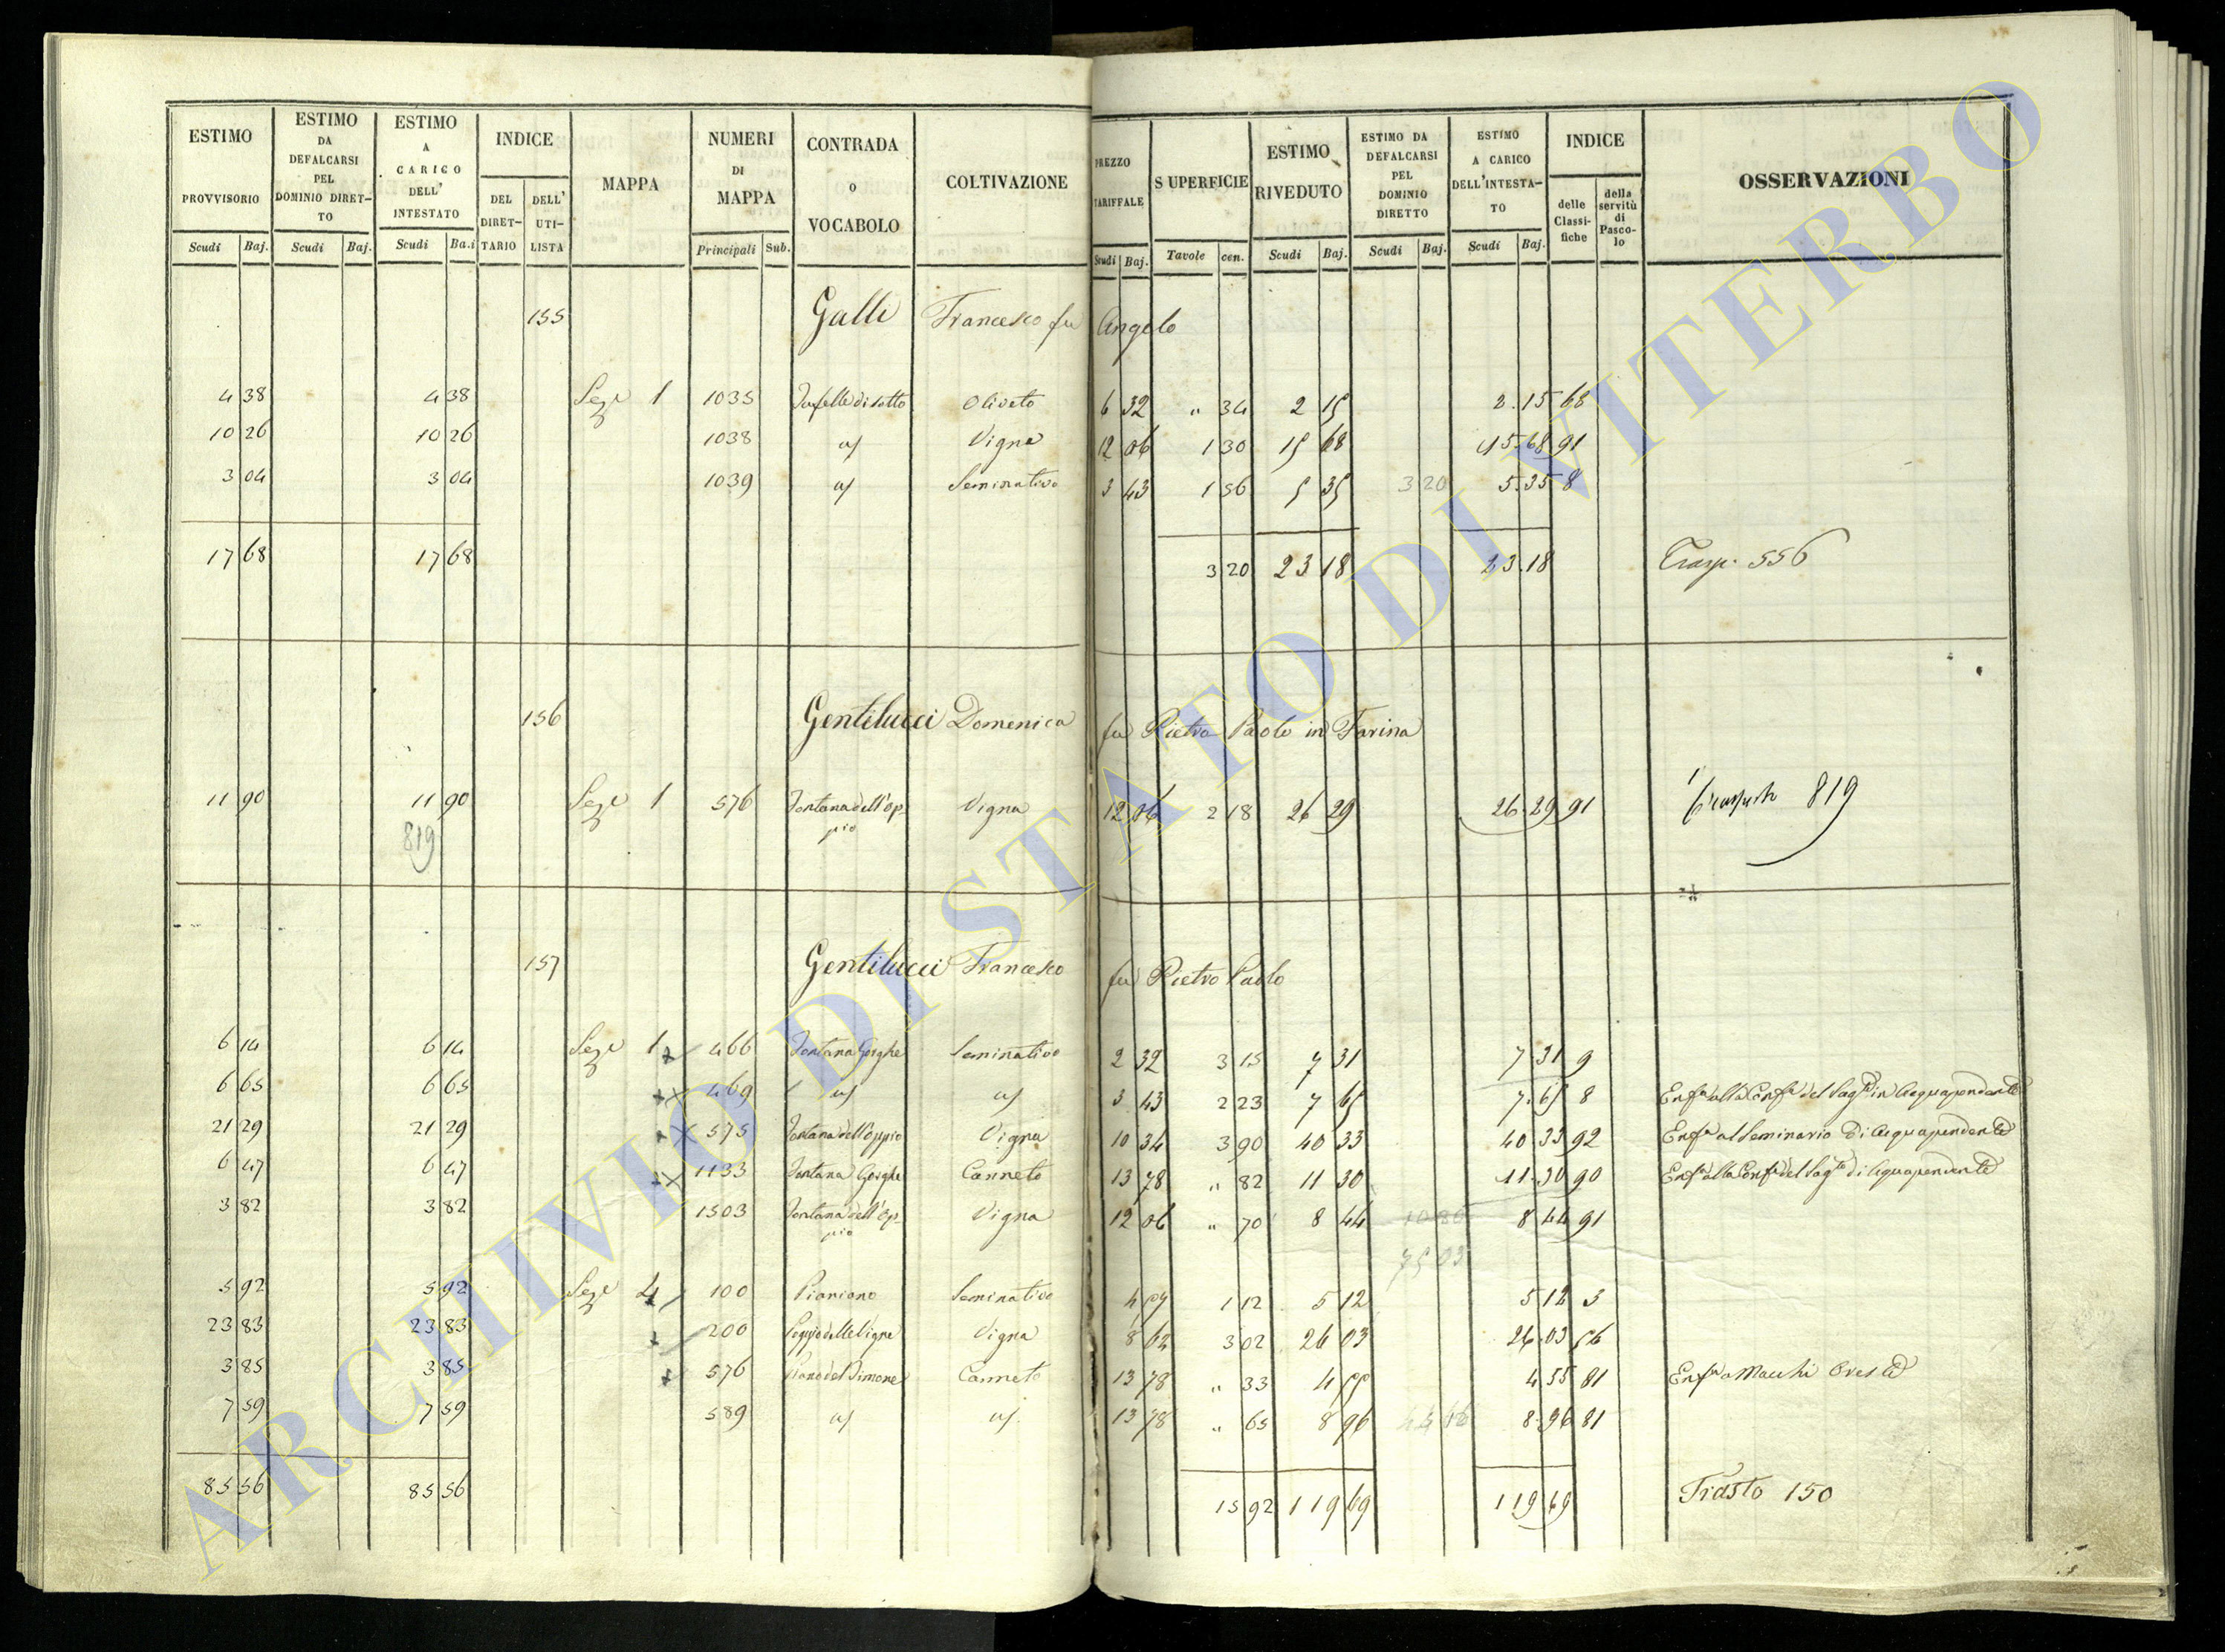 ESTIMO PROVVISORIO Scudi Baj.
ESTIMO DA DEFALCARSI PEL DOMINIO DIRET-TO Scudi Baj.
ESTIMO A CARICO DELL' INTESTATO Scudi Ba.i
INDICE DEL DIRET-TARIO DELL' UTI-LISTA
MAPPA
NUMERI DI MAPPA Principali Sub.
CONTRADA O VOCABOLO
COLTIVAZIONE
PREZZO TARIFFALE Scudi Baj.
SUPERFICIE Tavole cen.
ESTIMO RIVEDUTO Scudi Baj.
ESTIMO DA DEFALCARSI PEL DOMINIO DIRETTO Scudi Baj.
ESTIMO A CARICO DELL'INTESTA-TO Scudi Baj.
INDICE delle Classi-fiche della servitù di Pasco-lo
OSSERVAZIONI
155 Galli Francesco fu Angelo
4 38 4 38 Sez.e 1 1035 di sotto Oliveto 6 32 " 34 2 15 2.15 68
10 26 10 26 1038 a/ Vigna 12 06 1 30 15 68 15.68 91
3 04 3 04 1039 a/ Seminativo 3 43 1 56 5 35 3 20 5.35 8
17 68 17 68 3 20 23 18 23.18 Trasp. 556
156 Gentilucci Domenica fu Pietro Paolo in Farina
11 90 11 90 Sez.e 1 576 Fontana dell'Op-pio Vigna 12 06 2 18 26 29 26.29 91 Trasporto 819
819
157 Gentilucci Francesco fu Pietro Paolo
6 14 6 14 Sez.e 1 466 Fontana Gorghe Seminativo 2 32 3 15 7 31 7.31 9
6 65 6 65 469 a/ a/ 3 43 2 23 7 65 7.65 8 Enf.a alla Conf.a del Sag.to in Acquapendente
21 29 21 29 575 Fontana dell'Oppio Vigna 10 34 3 90 40 33 40 33 92 Enf.a al Seminario di Acquapendente
6 47 6 47 1133 Fontana Gorghe Canneto 13 78 " 82 11 30 11.30 90 Enf.a alla Conf.a del Sag.to di Acquapendente
3 82 3 82 1503 Fontana dell'Op-pio Vigna 12 06 " 70 8 44 8 44 91
75 03
5 92 5 92 Sez.e 4 100 Pianiano Seminativo 4 57 1 12 5 12 5 12 3
23 83 23 83 200 Poggio delle Vigne Vigna 8 62 3 02 26 03 26.03 56
3 85 3 85 576 Piano del Simone Canneto 13 78 " 33 4 55 4 55 81 Enf.a a Macchi Oreste
7 59 7 59 589 a/ a/ 13 78 " 65 8 96 44 66 8.96 81
85 56 85 56 15 92 119 69 119 69 Trasto 150
ARCHIVIO DI STATO DI VITERBO